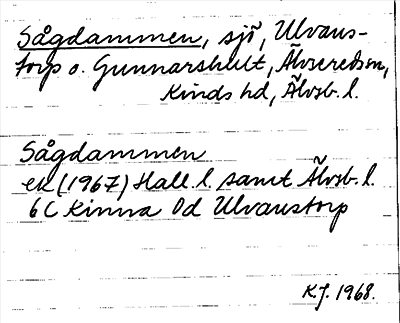 Sågdammen, sjö, Ulvaus-
torp o. Gunnarshult, Älvsereds sn,
Kinds hd, Älvsb. l.
Sågdammen
ek (1967) Hall. l. samt Älvsb. l.
6 C Kinna 0d Ulvaustorp
K.J. 1968.